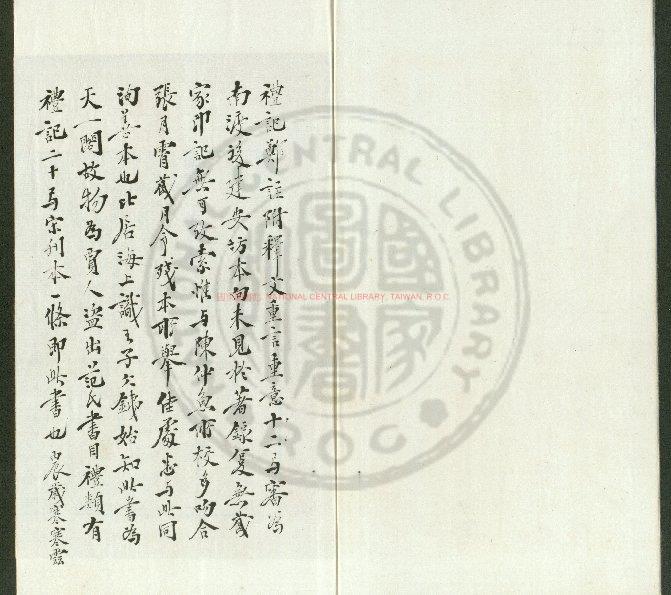 禮記鄭註附釋文重言重意十二弓審為
南渡後建安坊本向未見於著錄復無藏
家印記無可攷索惟與陳仲魚所校多吻合
張月霄藏月令殘本所舉佳處悉与此同
洵善本也卜居海上識王子六銕始知此書為
天一閣故物為賈人盜出范氏書目禮類有
禮記二十弓宋刊本一條即此書也 辰歲寒寒雲
國家圖書館 NATIONAL CENTRAL LIBRARY, TAIWAN, R.O.C.
NATIONAL CENTRAL LIBRARY R.O.C.
國家圖書